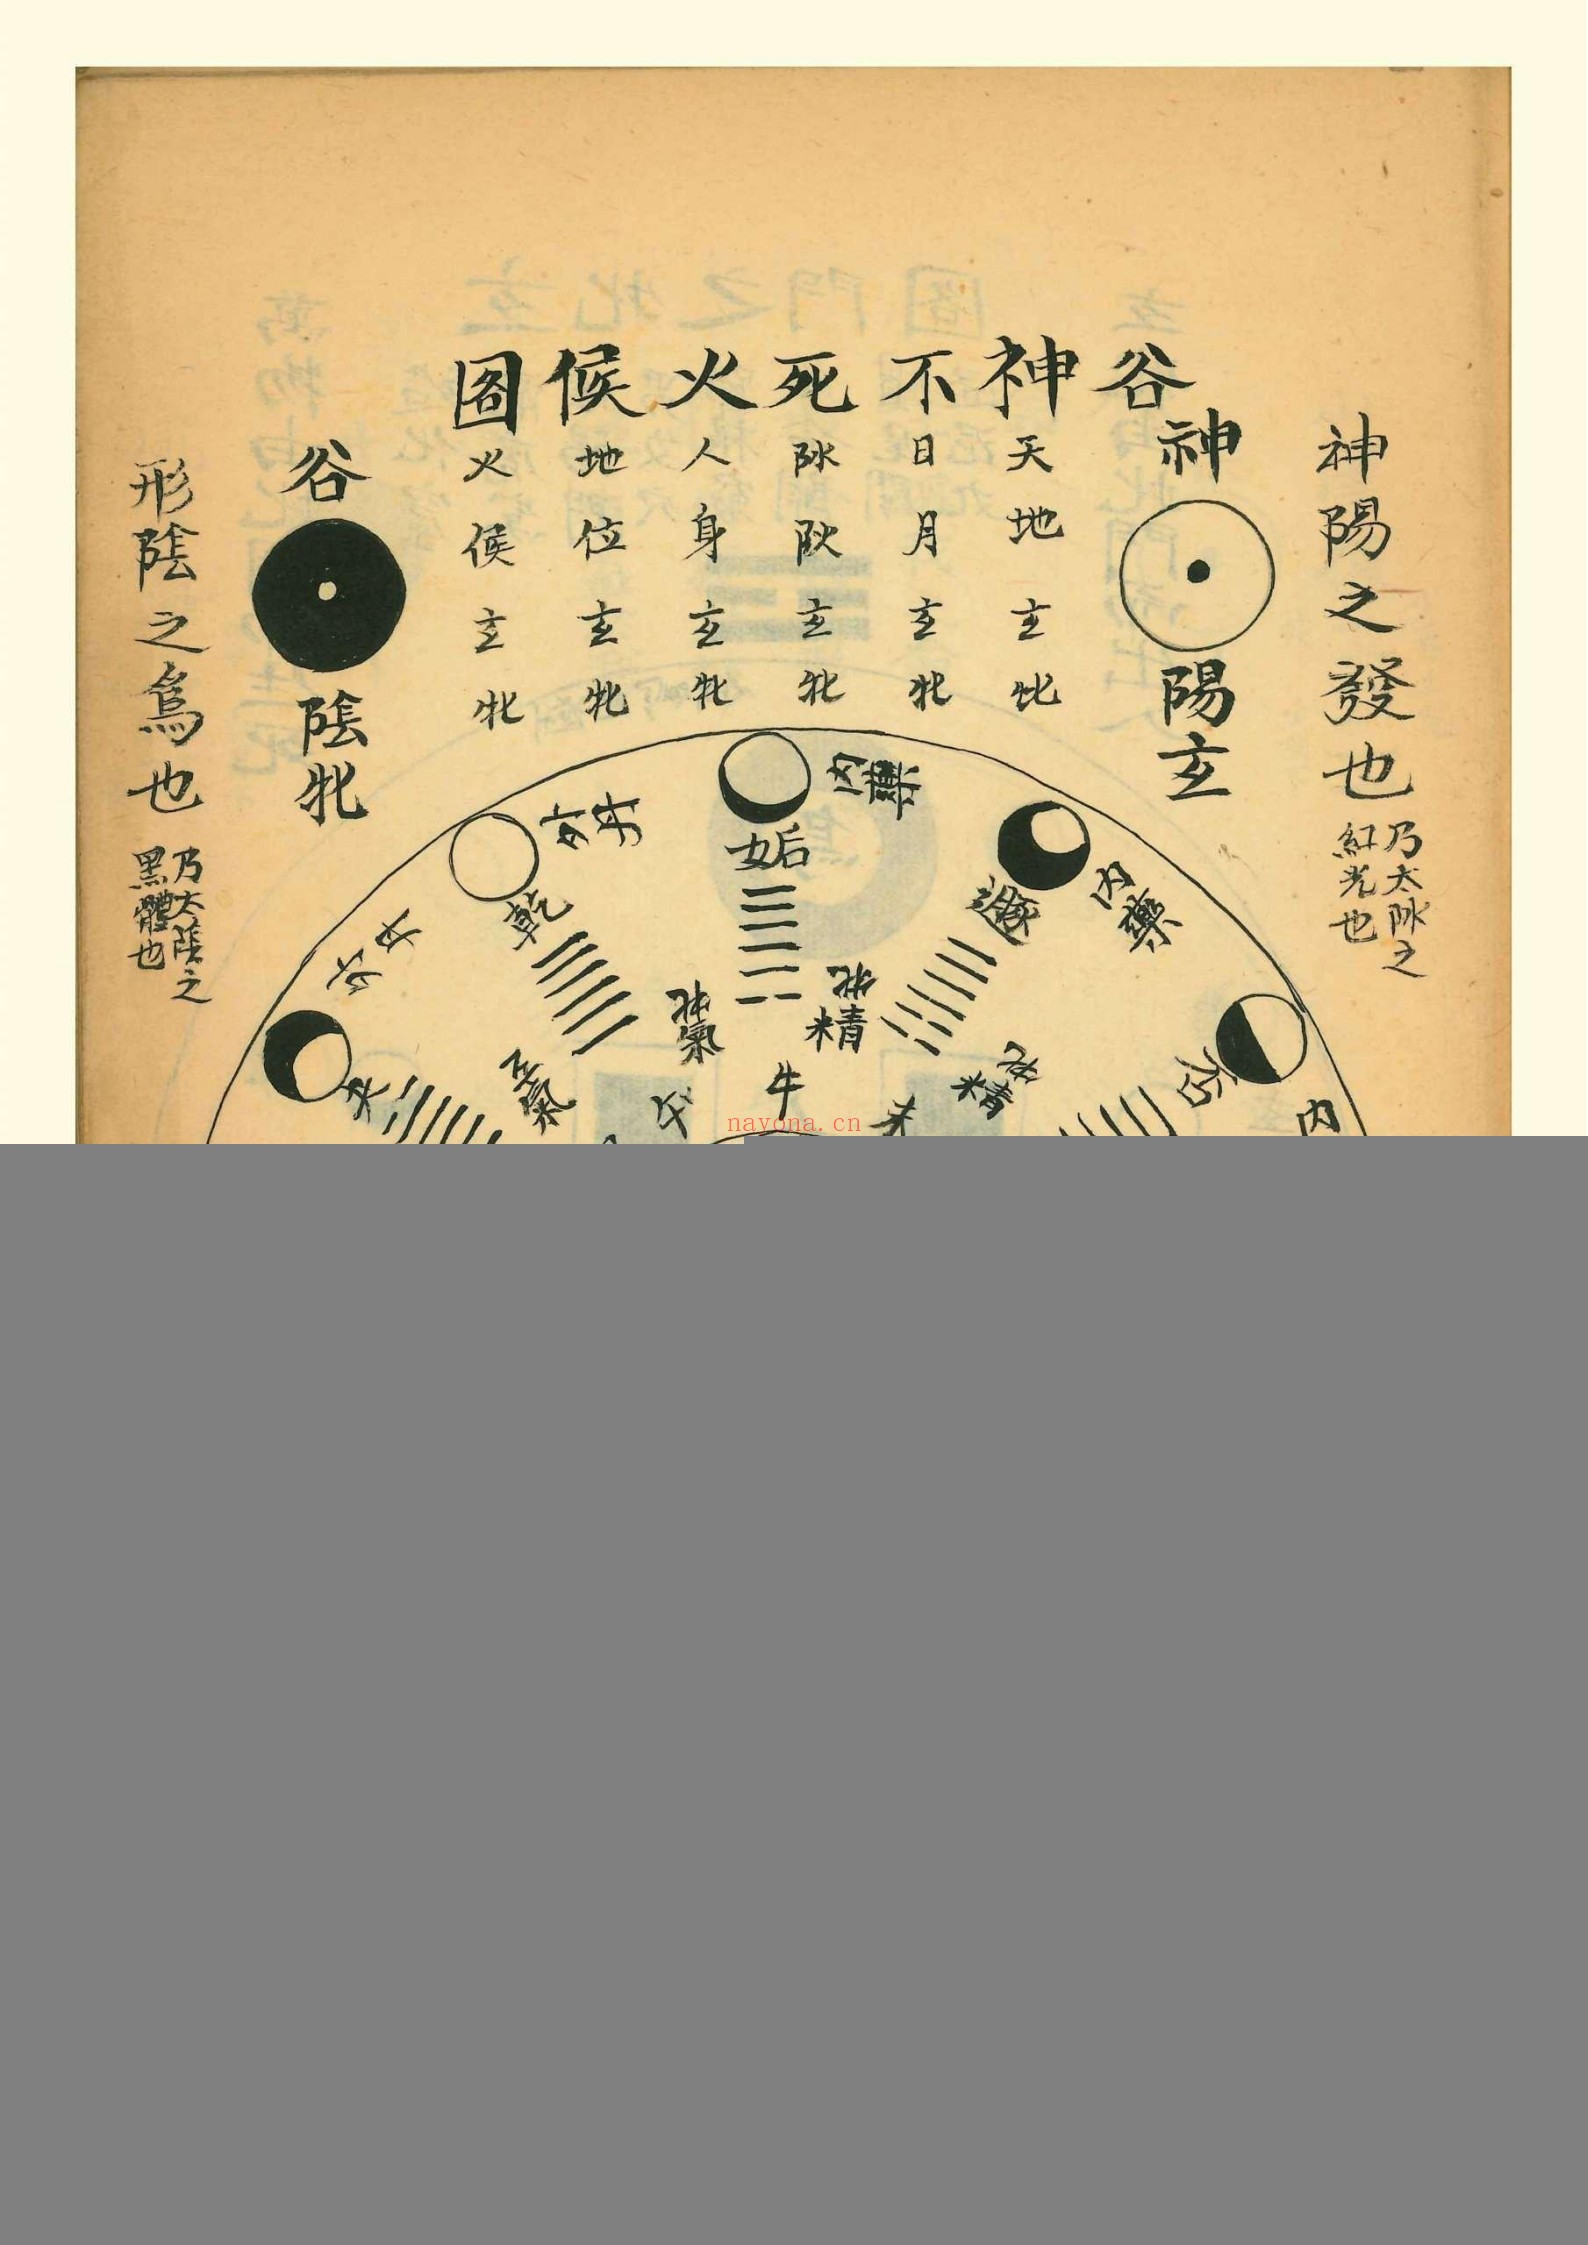 谷神不死火候圖
神陽之發也
乃太阦之
紅光也
神
陽玄
天地玄牝
日月玄牝
玄牝
人身玄牝
地位玄牝
火候玄牝
谷
陰牝
形陰之為也
乃太陰之
黑體也
內藥
姤
牝精
外丹
乾
牝氣
玄氣
外丹
夬
內藥
遯
牝精
否
內
午
未
nayona.cn